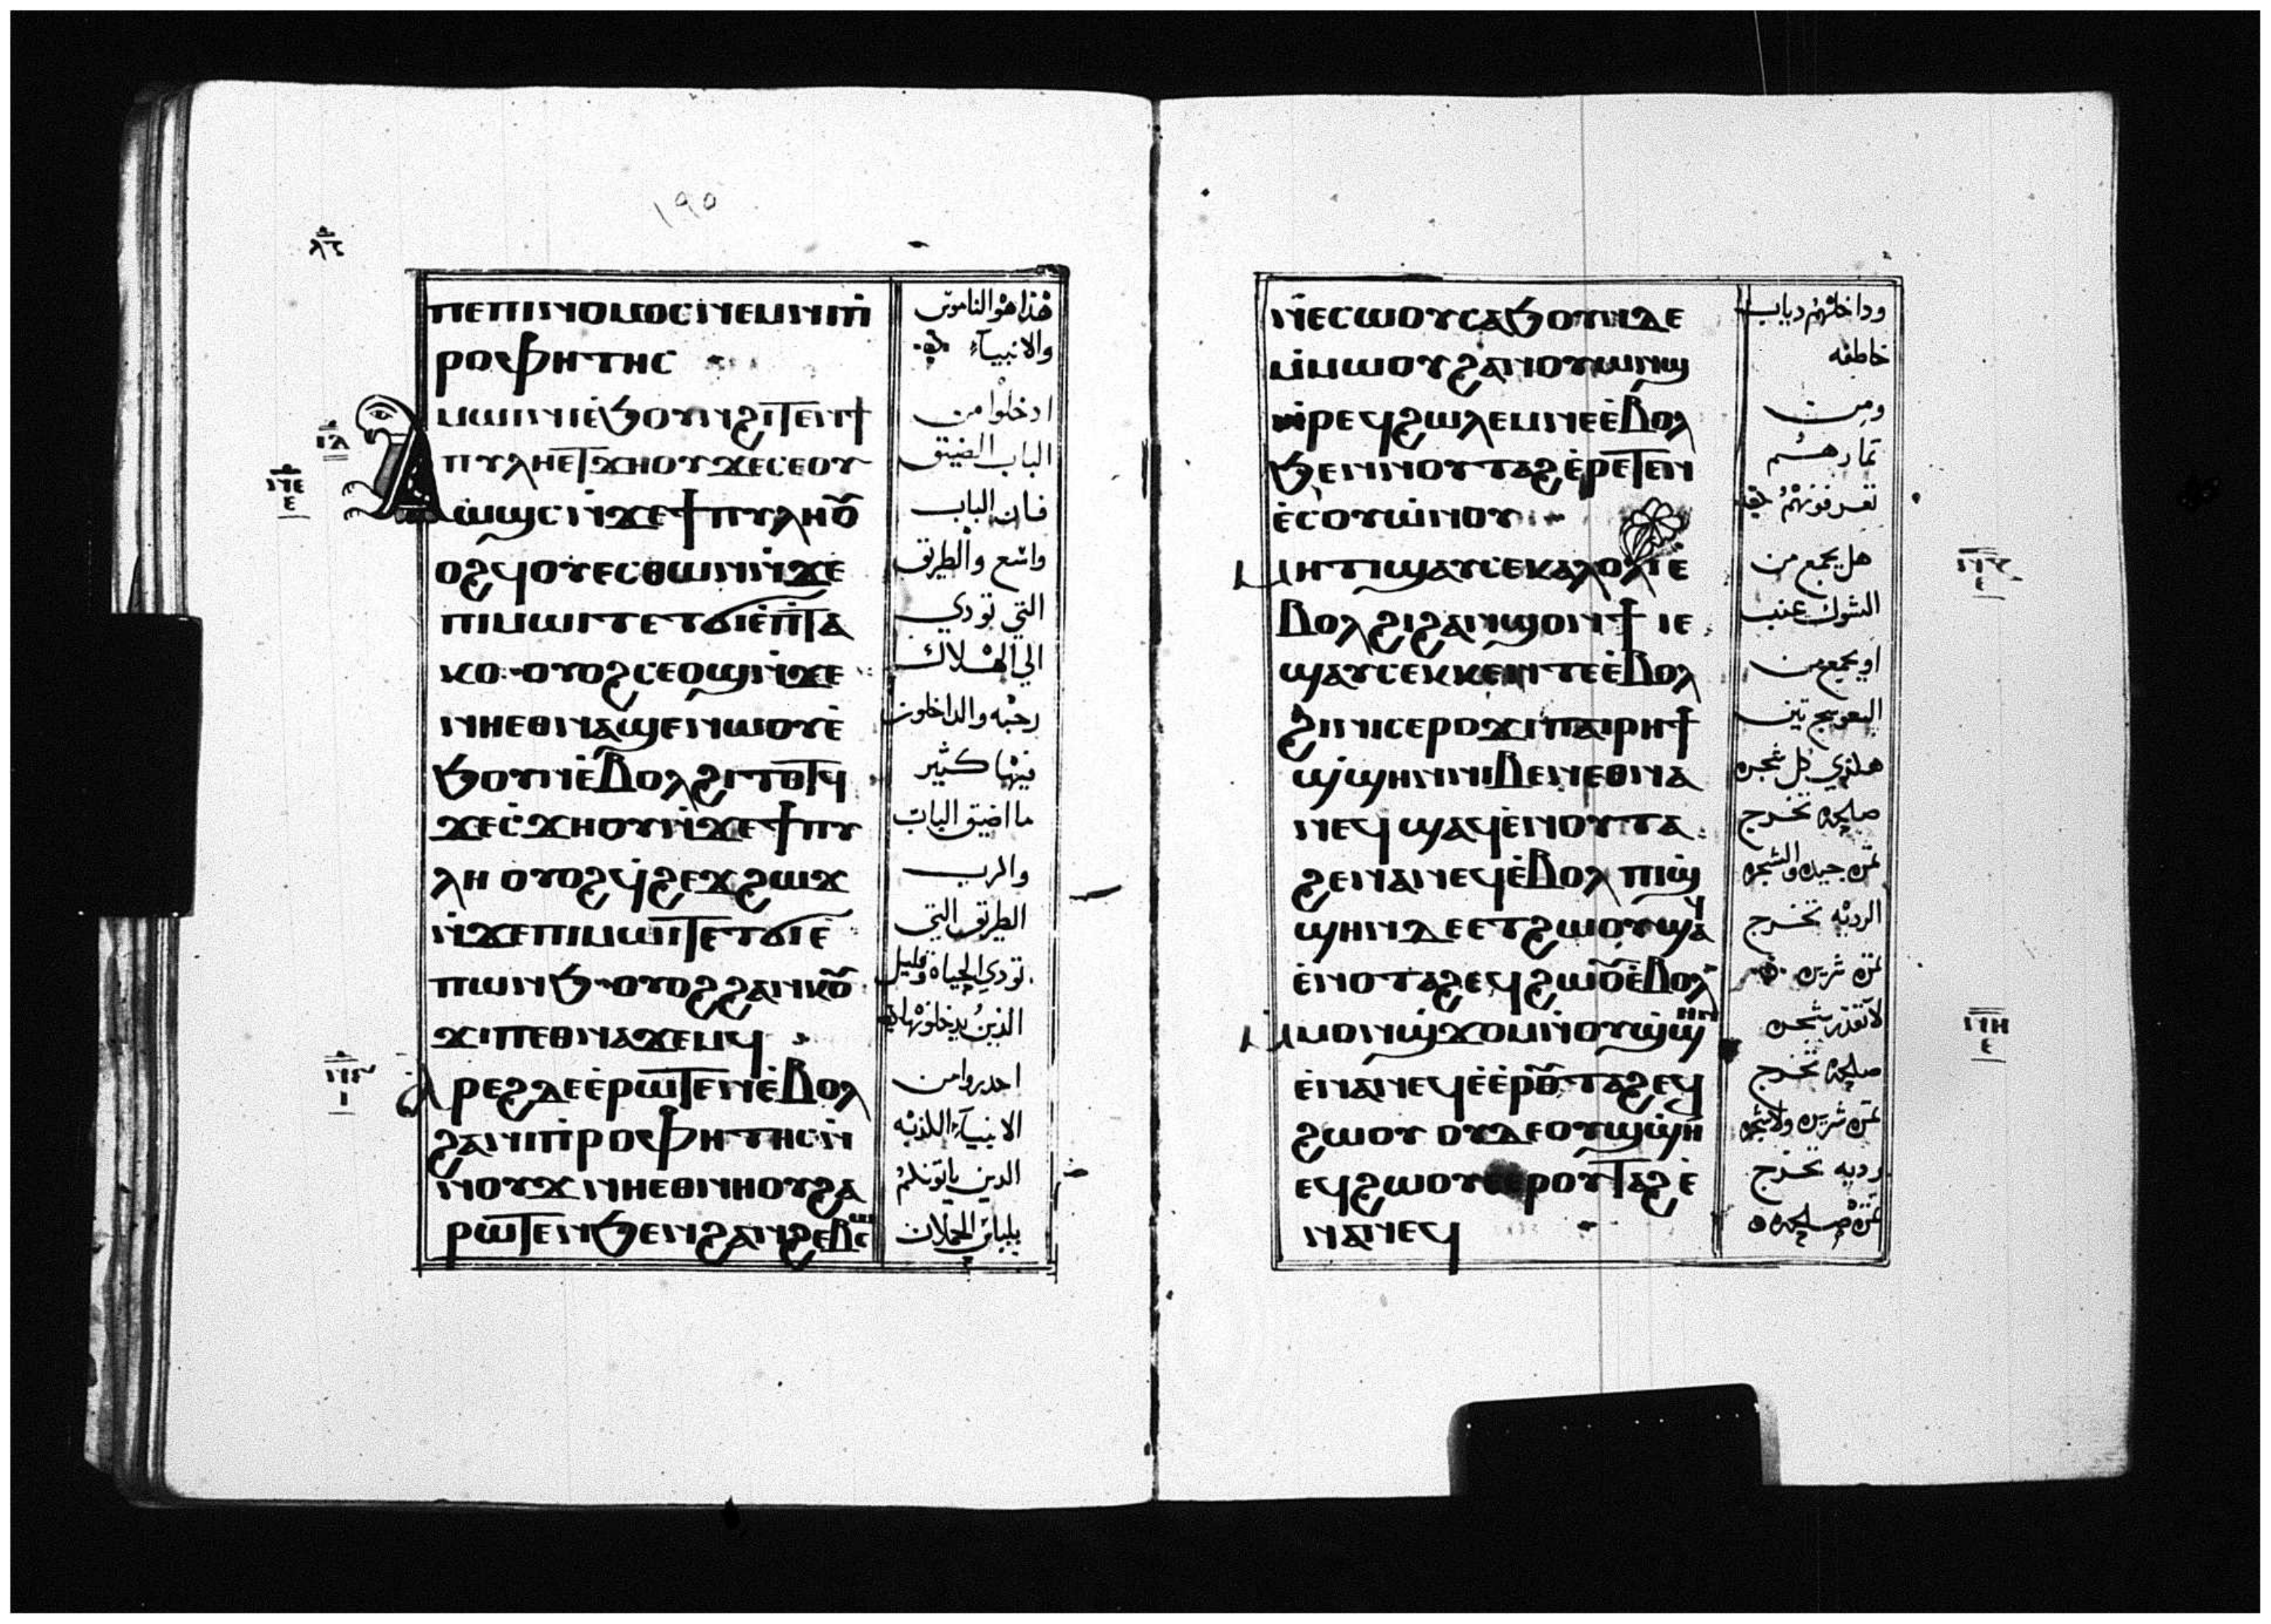 ⲡⲉⲡⲓⲛⲟⲙⲟⲥⲛⲉⲙⲛⲓⲡ̀
ⲣⲟⲫⲏⲧⲏⲥ
ⲁⲙⲱⲓⲛⲓⲉ̀ϧⲟⲩⲛϩⲓⲧⲉⲛϯ
ⲡⲩⲗⲏⲉⲧϫⲏⲟⲩϫⲉⲥⲉⲟⲩ
ⲱ̀ϣⲥⲛ̀ϫⲉϯⲡⲩⲗⲏⲟⲩ
ⲟϩϥⲟⲩⲉⲥⲑⲱⲛⲛ̀ϫⲉ
ⲡⲓⲙⲱⲓⲧⲉⲧϭⲓⲉ̀ⲡ̀ⲧⲁ
ⲕⲟ ⲟⲩⲟϩⲥⲉⲟϣⲛ̀ϫⲉ
ⲛⲏⲉⲑⲛⲁϣⲉⲛⲱⲟⲩⲉ̀
ϧⲟⲩⲛⲉ̀ⲃⲟⲗϩⲓⲧⲟⲧϥ
ϫⲉⲥ̀ϫⲏⲟⲩⲛ̀ϫⲉϯⲡⲩ
ⲗⲏ ⲟⲩⲟϩϥ̀ϩⲉϫϩⲱϫ
ⲛ̀ϫⲉⲡⲓⲙⲱⲓⲧⲉⲧϭⲓⲉ̀
ⲡⲱⲛϧ ⲟⲩⲟϩϩⲁⲛⲕⲟⲩ
ϫⲓⲡⲉⲑⲛⲁϫⲉⲙϥ
ⲁⲣⲉϩⲇⲉⲉ̀ⲣⲱⲧⲉⲛⲉ̀ⲃⲟⲗ
ϩⲁⲛⲓⲡ̀ⲣⲟⲫⲏⲧⲏⲥⲛ̀
ⲛⲟⲩϫ ⲛⲏⲉⲑⲛⲏⲟⲩϩⲁ
ⲣⲱⲧⲉⲛϧⲉⲛϩⲁⲛϩⲉⲃⲥⲱ
هذا هو الناموس
والانبياء
ادخلوا من
الباب الضيق
فان الباب
واسع والطريق
التي تودي
الي الهلاك
رحبه والداخلون
فيها كثير
ما اضيق الباب
والرب
الطريق التي
تودي الحياة وقليل
الذين يدخلونها
احدروا من
الانبياء اللدبه
الدين ياتونلم
بلباس الحملان
ⲛ̀ⲉⲥⲱⲟⲩⲥⲁϧⲟⲩⲛⲇⲉ
ⲙ̀ⲙⲱⲟⲩϩⲁⲛⲟⲩⲱⲛϣ
ⲛ̀ⲣⲉϥϩⲱⲗⲉⲙⲛⲉⲉ̀ⲃⲟⲗ
ϧⲉⲛⲛⲟⲩⲧⲁϩⲉ̀ⲣⲉⲧⲉⲛ
ⲉ̀ⲥⲟⲩⲱ̀ⲛⲟⲩ
ⲙⲏⲧⲓϣⲁⲩⲥⲉⲕⲁⲗⲟⲗⲓⲉ̀
ⲃⲟⲗϩⲓϩⲁⲛϣⲟⲛϯ ⲓⲉ
ϣⲁⲩⲥⲉⲕⲕⲉⲛⲧⲉⲉ̀ⲃⲟⲗ
ϩⲓⲛⲓⲥⲉⲣⲟϫⲓⲡⲁⲓⲣⲏϯ
ϣ̀ϣⲏⲛⲛⲓⲃⲉⲛⲉⲑⲛⲁ
ⲛⲉϥ ϣⲁϥⲉ̀ⲛⲟⲩⲧⲁ
ϩⲉⲛⲁⲛⲉϥⲉ̀ⲃⲟⲗ ⲡⲓϣ̀
ϣⲏⲛⲇⲉⲉⲧϩⲱⲟⲩϣⲁϥ
ⲉ̀ⲛⲟⲧⲁϩⲉϥϩⲱⲟⲩⲉ̀ⲃⲟⲗ
ⲙⲙⲟⲛϣ̀ϫⲟⲙⲛ̀ⲟⲩϣ̀ϣⲏⲛ
ⲉ̀ⲛⲁⲛⲉϥⲉ̀ⲉ̀ⲣⲟⲩⲧⲁϩⲉϥ
ϩⲱⲟⲩ ⲟⲩⲇⲉⲟⲩϣ̀ϣⲏⲛ
ⲉϥϩⲱⲟⲩⲉⲉⲣⲟⲩⲧⲁϩⲉ̀
ⲛⲁⲛⲉϥ
وداخلهم دياب
خاطفه
ومن
تمارهم
تعرفونهم
هل يجمع من
الشوك عنب
او يجمع من
العوسج تين
هلذي كل شجره
صالحه تخرج
تمره جيده والشجره
الرديه تخرج
تمره شريره
لا تقدر شجره
صالحه تخرج
تمره شريره ولا شجره
رديه تخرج
تمره صالحه
١٩٥
ⲓⲁ
ⲛⲉ
ⲉ
ⲛⲏ
ⲉ